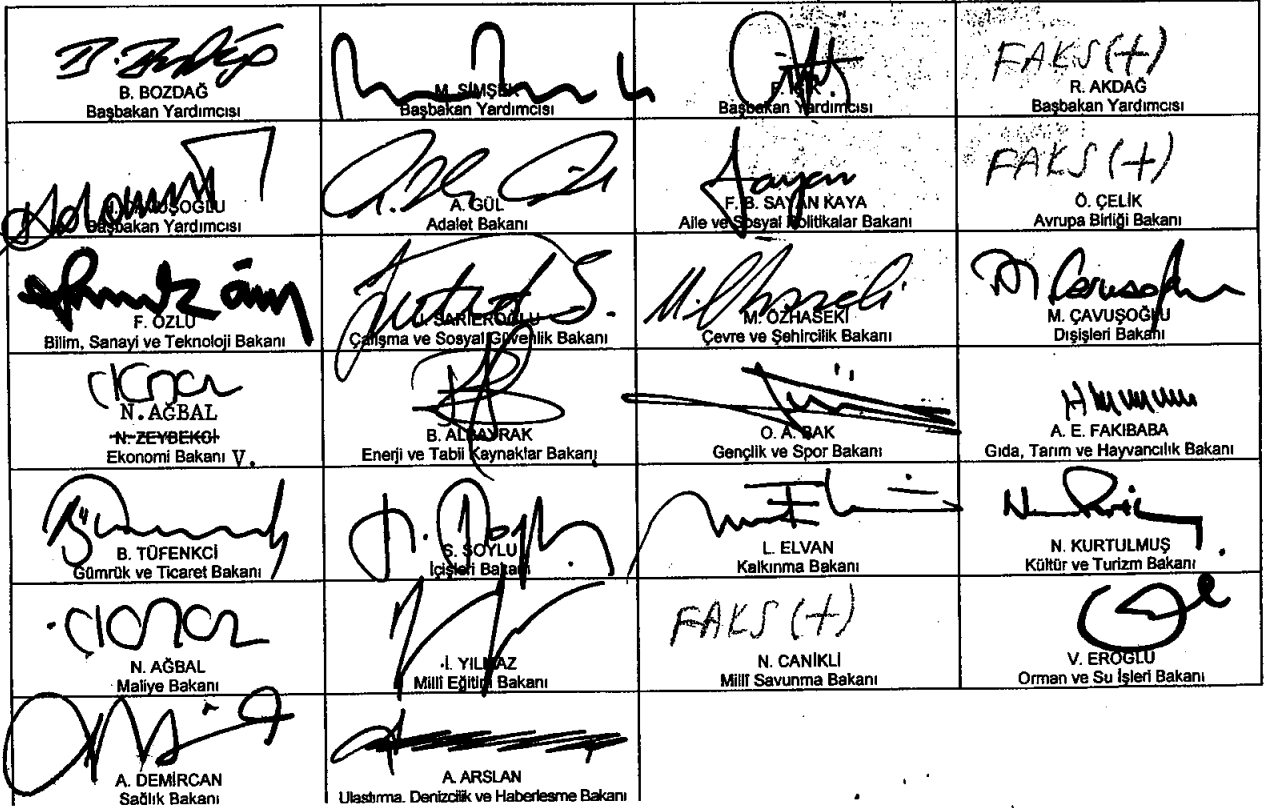 B. BOZDAĞ
Başbakan Yardımcısı
M. ŞİMŞEK
Başbakan Yardımcısı
Başbakan Yardımcısı
FAKS (+)
R. AKDAĞ
Başbakan Yardımcısı
Başbakan Yardımcısı
A. GÜL
Adalet Bakanı
F. B. SAYAN KAYA
Aile ve Sosyal Politikalar Bakanı
FAKS (+)
Ö. ÇELİK
Avrupa Birliği Bakanı
F. ÖZLÜ
Bilim, Sanayi ve Teknoloji Bakanı
J. SARIEROĞLU
Çalışma ve Sosyal Güvenlik Bakanı
M. ÖZHASEKİ
Çevre ve Şehircilik Bakanı
M. ÇAVUŞOĞLU
Dışişleri Bakanı
N. AĞBAL
N. ZEYBEKCİ
Ekonomi Bakanı V.
B. ALBAYRAK
Enerji ve Tabii Kaynaklar Bakanı
O. A. BAK
Gençlik ve Spor Bakanı
A. E. FAKIBABA
Gıda, Tarım ve Hayvancılık Bakanı
B. TÜFENKCİ
Gümrük ve Ticaret Bakanı
S. SOYLU
İçişleri Bakanı
L. ELVAN
Kalkınma Bakanı
N. KURTULMUŞ
Kültür ve Turizm Bakanı
N. AĞBAL
Maliye Bakanı
İ. YILMAZ
Millî Eğitim Bakanı
FAKS (+)
N. CANİKLİ
Millî Savunma Bakanı
V. EROĞLU
Orman ve Su İşleri Bakanı
A. DEMİRCAN
Sağlık Bakanı
A. ARSLAN
Ulaştırma, Denizcilik ve Haberleşme Bakanı